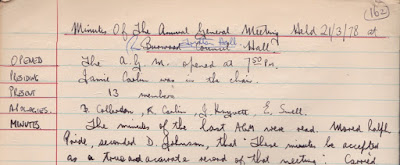 (162)
Minutes Of The Annual General Meeting Held 21/3/78 at
Burwood Council Hall
OPENED The A.G.M. opened at 7.50 Pm.
PRESIDING Jamie Carlin was in the chair.
PRESENT 13 members
APOLOGIES. B. Colledon, R. Carlin, J. Knyvett, E. Snell.
MINUTES The minutes of the last AGM were read. Moved Ralph
Pride, seconded D. Johnson, that "These minutes be accepted
as a true and accurate record of that meeting". Carried